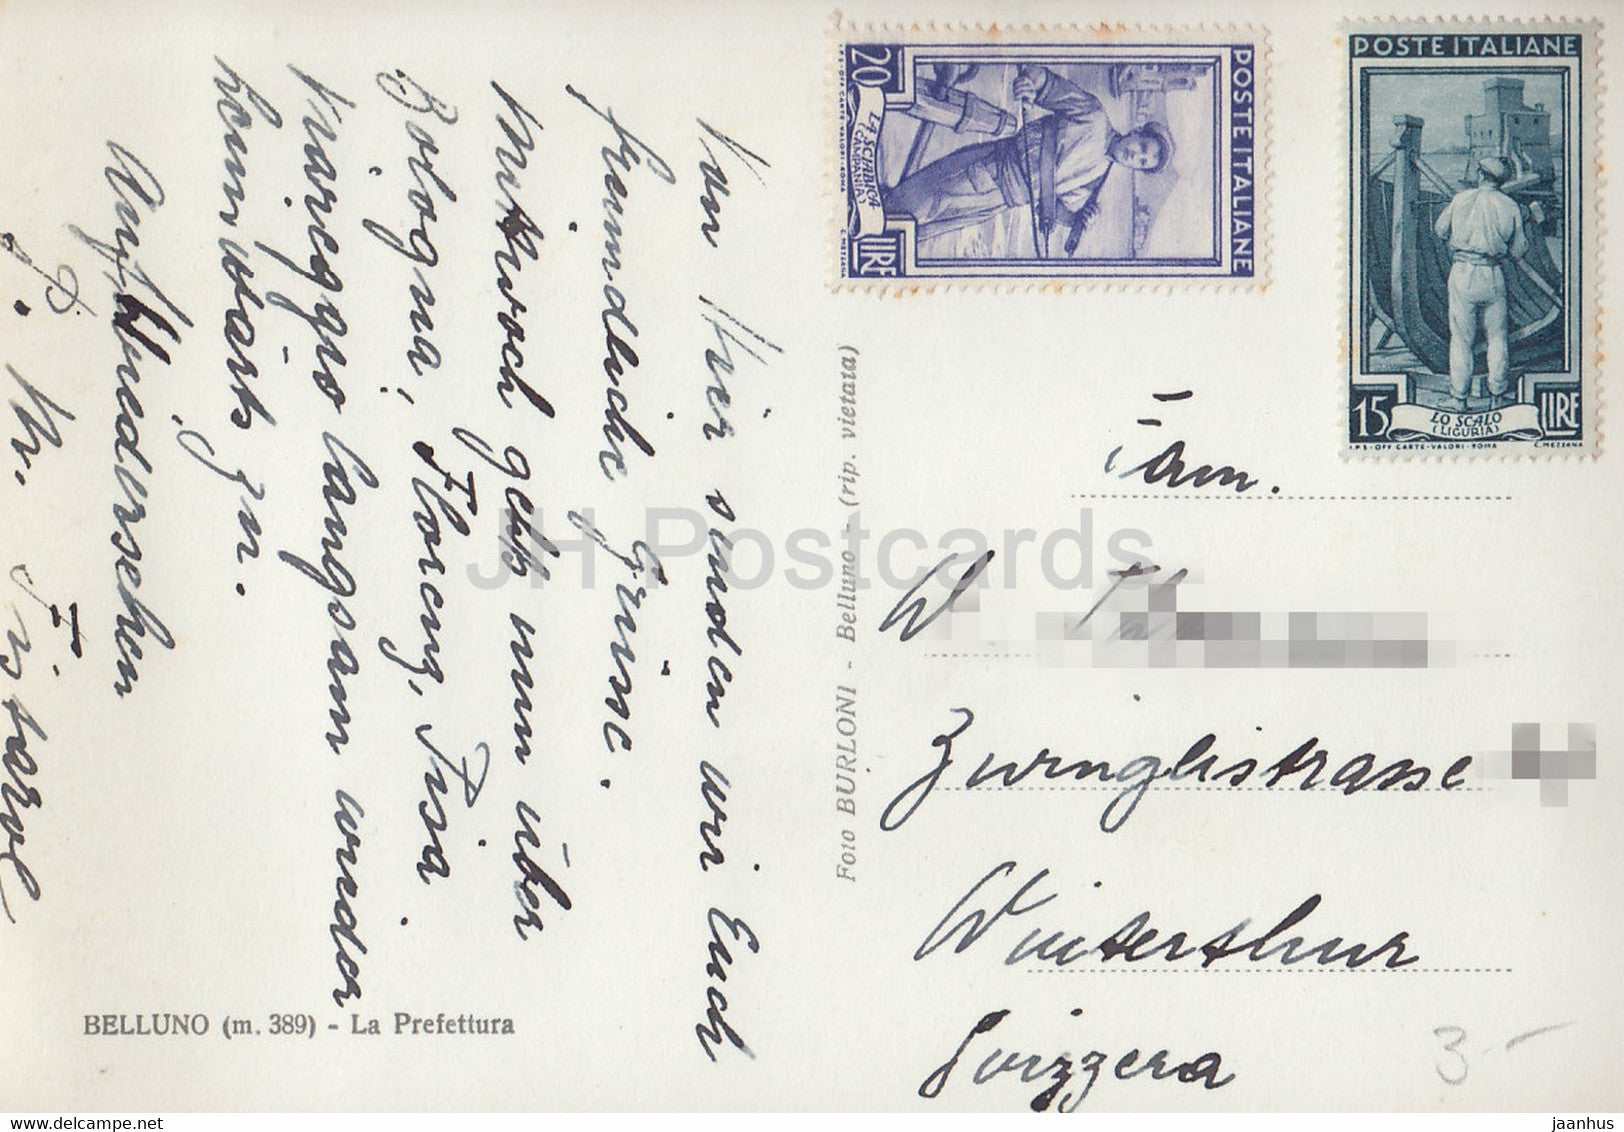 Von Hier senden wir Euch
freundliche Grüsse.
Mittwoch geht nun über
Bologna, Florenz, Pisa
Viareggio langsam wieder
heimwärts zu.
Auf Wiedersehen
BELLUNO (m. 389) - La Prefettura
Foto BURLONI - Belluno - (rip. vietata)
POSTE ITALIANE
20 LIRE
LA SCIABICA
(CAMPANIA)
I.P.S.-OFF. CARTE-VALORI-ROMA C. MEZZANA
POSTE ITALIANE
15 LIRE
LO SCALO
(LIGURIA)
I.P.S.-OFF. CARTE-VALORI-ROMA C. MEZZANA
Fam.
W
Zwinglistrasse
Winterthur
Svizzera
3.-
JH Postcards
jaanhus